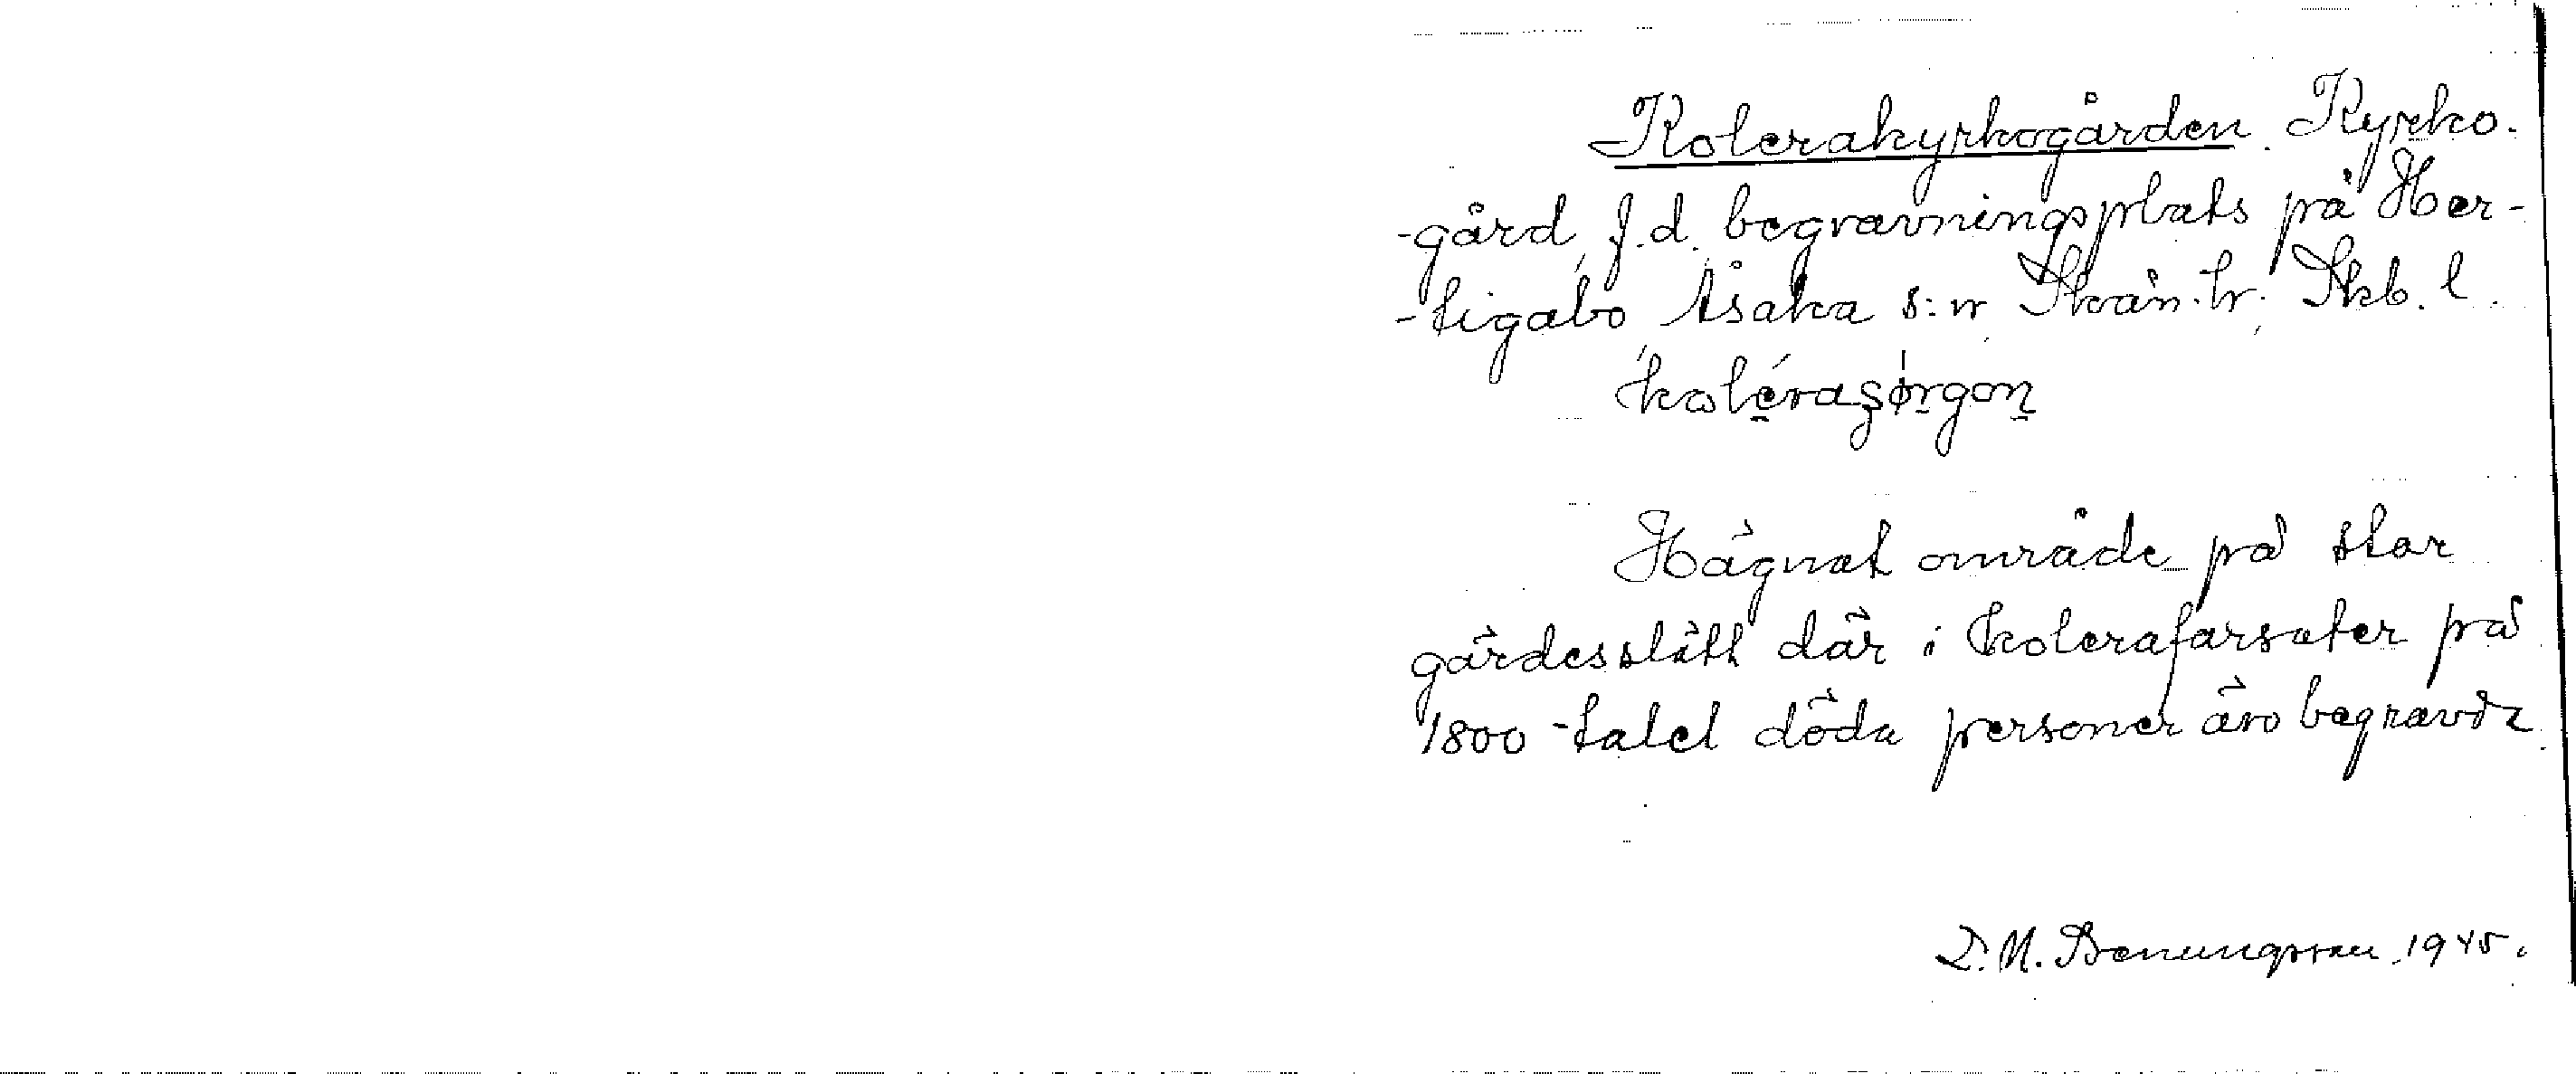 Kolerakyrkogården. Kyrko-
-gård, f.d. begravningsplats på Her-
-tigabo, Åsaka s:n Skån. hr, Skb. l.
kolérasǿrgon
Hägnat område på stor
gärdesslätt där i kolerafarsoter på
1800-talet döda personer äro begravda.
D.M. Benungssau 1945.